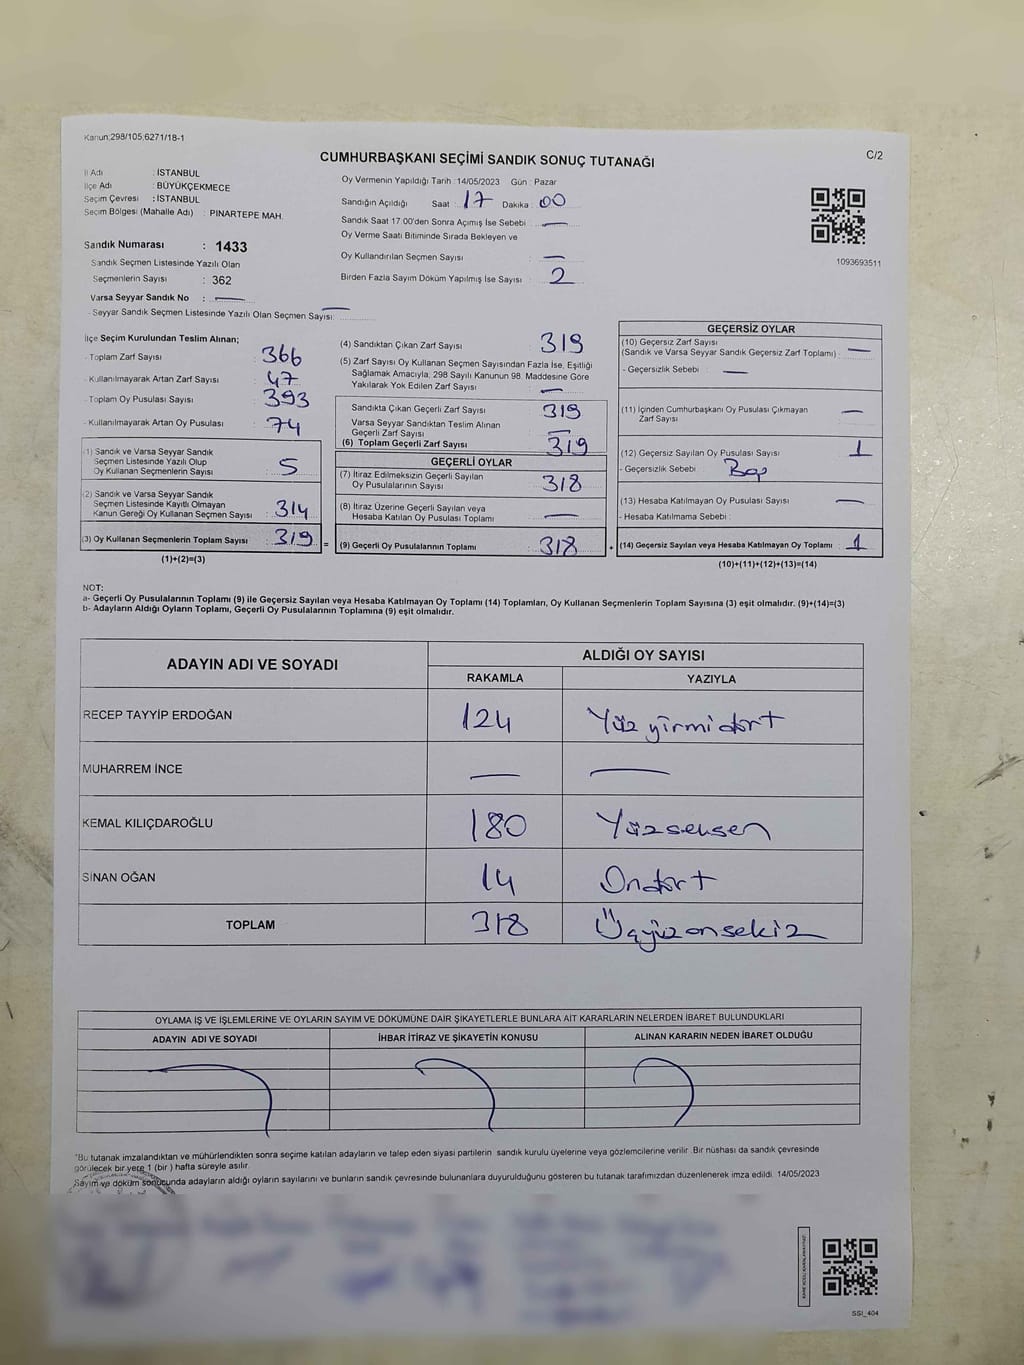 Kanun:298/105,6271/18-1
C/2
CUMHURBAŞKANI SEÇİMİ SANDIK SONUÇ TUTANAĞI
İl Adı : İSTANBUL
İlçe Adı : BÜYÜKÇEKMECE
Seçim Çevresi : İSTANBUL
Seçim Bölgesi (Mahalle Adı) : PINARTEPE MAH.
Oy Vermenin Yapıldığı Tarih : 14/05/2023 Gün : Pazar
Sandığın Açıldığı Saat : 17 Dakika : 00
Sandık Saat 17:00'den Sonra Açımış İse Sebebi : —
Oy Verme Saati Bitiminde Sırada Bekleyen ve
Oy Kullandırılan Seçmen Sayısı : —
Birden Fazla Sayım Döküm Yapılmış İse Sayısı : 2
1093693511
Sandık Numarası : 1433
Sandık Seçmen Listesinde Yazılı Olan
Seçmenlerin Sayısı : 362
Varsa Seyyar Sandık No : —
- Seyyar Sandık Seçmen Listesinde Yazılı Olan Seçmen Sayısı: —
İlçe Seçim Kurulundan Teslim Alınan;
- Toplam Zarf Sayısı : 366
- Kullanılmayarak Artan Zarf Sayısı : 47
- Toplam Oy Pusulası Sayısı : 393
- Kullanılmayarak Artan Oy Pusulası : 74
(1) Sandık ve Varsa Seyyar Sandık
Seçmen Listesinde Yazılı Olup
Oy Kullanan Seçmenlerin Sayısı : 5
(2) Sandık ve Varsa Seyyar Sandık
Seçmen Listesinde Kayıtlı Olmayan
Kanun Gereği Oy Kullanan Seçmen Sayısı : 314
(3) Oy Kullanan Seçmenlerin Toplam Sayısı : 319 =
(1)+(2)=(3)
(4) Sandıktan Çıkan Zarf Sayısı : 319
(5) Zarf Sayısı Oy Kullanan Seçmen Sayısından Fazla İse, Eşitliği
Sağlamak Amacıyla; 298 Sayılı Kanunun 98. Maddesine Göre
Yakılarak Yok Edilen Zarf Sayısı : —
Sandıkta Çıkan Geçerli Zarf Sayısı : 319
Varsa Seyyar Sandıktan Teslim Alınan
Geçerli Zarf Sayısı : —
(6) Toplam Geçerli Zarf Sayısı : 319
GEÇERLİ OYLAR
(7) İtiraz Edilmeksizin Geçerli Sayılan
Oy Pusulalarının Sayısı : 318
(8) İtiraz Üzerine Geçerli Sayılan veya
Hesaba Katılan Oy Pusulası Toplamı : —
(9) Geçerli Oy Pusulalarının Toplamı : 318 +
GEÇERSİZ OYLAR
(10) Geçersiz Zarf Sayısı
(Sandık ve Varsa Seyyar Sandık Geçersiz Zarf Toplamı) : —
- Geçersizlik Sebebi : —
(11) İçinden Cumhurbaşkanı Oy Pusulası Çıkmayan
Zarf Sayısı : —
(12) Geçersiz Sayılan Oy Pusulası Sayısı : 1
- Geçersizlik Sebebi : Boş
(13) Hesaba Katılmayan Oy Pusulası Sayısı : —
- Hesaba Katılmama Sebebi :
(14) Geçersiz Sayılan veya Hesaba Katılmayan Oy Toplamı : 1
(10)+(11)+(12)+(13)=(14)
NOT:
a- Geçerli Oy Pusulalarının Toplamı (9) ile Geçersiz Sayılan veya Hesaba Katılmayan Oy Toplamı (14) Toplamları, Oy Kullanan Seçmenlerin Toplam Sayısına (3) eşit olmalıdır. (9)+(14)=(3)
b- Adayların Aldığı Oyların Toplamı, Geçerli Oy Pusulalarının Toplamına (9) eşit olmalıdır.
ADAYIN ADI VE SOYADI
ALDIĞI OY SAYISI
RAKAMLA YAZIYLA
RECEP TAYYİP ERDOĞAN 124 Yüz yirmi dört
MUHARREM İNCE — —
KEMAL KILIÇDAROĞLU 180 Yüzseksen
SİNAN OĞAN 14 Ondört
TOPLAM 318 Üçyüzonsekiz
OYLAMA İŞ VE İŞLEMLERİNE VE OYLARIN SAYIM VE DÖKÜMÜNE DAİR ŞİKAYETLERLE BUNLARA AİT KARARLARIN NELERDEN İBARET BULUNDUKLARI
ADAYIN ADI VE SOYADI İHBAR İTİRAZ VE ŞİKAYETİN KONUSU ALINAN KARARIN NEDEN İBARET OLDUĞU
*Bu tutanak imzalandıktan ve mühürlendikten sonra seçime katılan adayların ve talep eden siyasi partilerin sandık kurulu üyelerine veya gözlemcilerine verilir. Bir nüshası da sandık çevresinde
görülecek bir yere 1 (bir) hafta süreyle asılır.
Sayım ve döküm sonucunda adayların aldığı oyların sayılarını ve bunların sandık çevresinde bulunanlara duyurulduğunu gösteren bu tutanak tarafımızdan düzenlenerek imza edildi. 14/05/2023
SSI_404